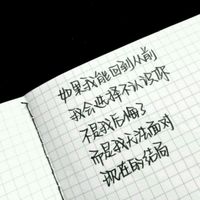 如果我能回到从前
我会选择不认识你
不是我后悔了
而是我无法面对
现在的结局